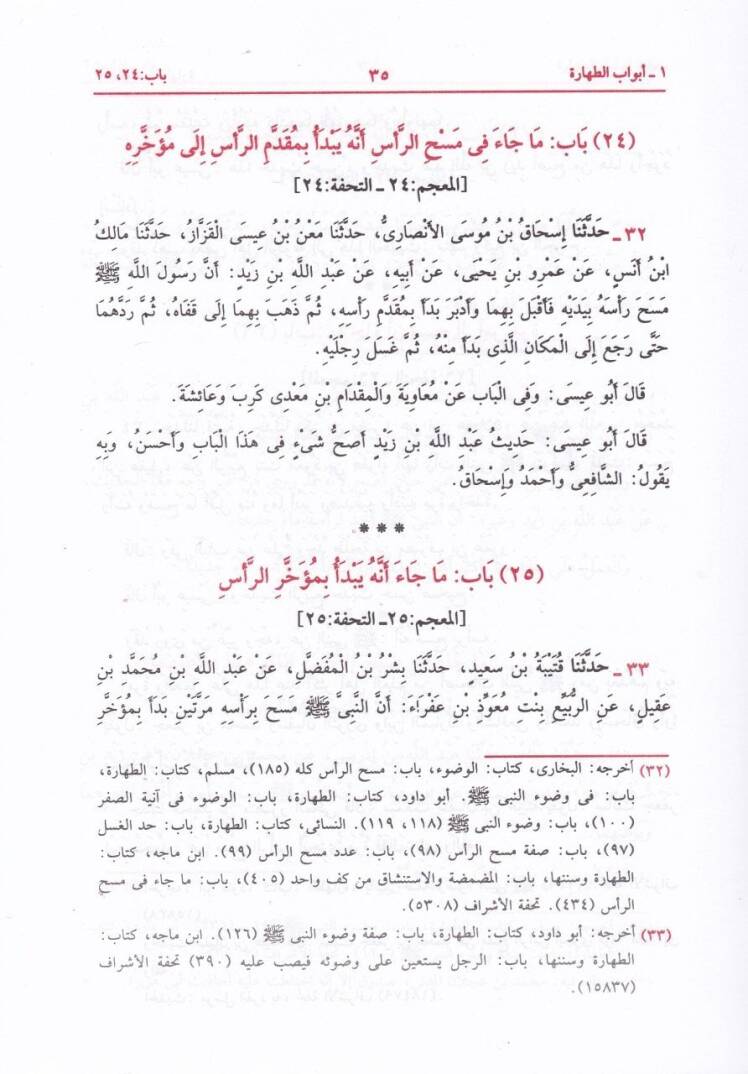 ١ ـ أبواب الطهارة ٣٥ باب: ٢٤، ٢٥
(٢٤) بَاب: مَا جَاءَ فِى مَسْحِ الرَّأْسِ أَنَّهُ يَبْدَأُ بِمُقَدَّمِ الرَّأْسِ إِلَى مُؤَخَّرِهِ
[المعجم:٢٤ ـ التحفة:٢٤]
٣٢ ـ حَدَّثَنَا إِسْحَاقُ بْنُ مُوسَى الأَنْصَارِىُّ، حَدَّثَنَا مَعْنُ بْنُ عِيسَى القَزَّازُ، حَدَّثَنَا مَالِكُ
ابْنُ أَنَسٍ، عَنْ عَمْرِو بنِ يَحْيَى، عَنْ أَبِيهِ، عَنْ عَبْدِ اللَّهِ بنِ زَيْدٍ: أَنَّ رَسُولَ اللَّهِ ﷺ
مَسَحَ رَأْسَهُ بِيَدَيْهِ فَأَقْبَلَ بِهِمَا وَأَدْبَرَ بَدَأَ بِمُقَدَّمِ رَأْسِهِ، ثُمَّ ذَهَبَ بِهِمَا إِلَى قَفَاهُ، ثُمَّ رَدَّهُمَا
حَتَّى رَجَعَ إِلَى الْمَكَانِ الَّذِى بَدَأَ مِنْهُ، ثُمَّ غَسَلَ رِجْلَيْهِ.
قَالَ أَبُو عِيسَى: وَفِى الْبَابِ عَنْ مُعَاوِيَةَ وَالْمِقْدَامِ بْنِ مَعْدِى كَرِبَ وَعَائِشَةَ.
قَالَ أَبُو عِيسَى: حَدِيثُ عَبْدِ اللَّهِ بْنِ زَيْدٍ أَصَحُّ شَىْءٍ فِى هَذَا الْبَابِ وَأَحْسَنُ، وَبِهِ
يَقُولُ: الشَّافِعِىُّ وَأَحْمَدُ وَإِسْحَاقُ.
***
(٢٥) بَاب: مَا جَاءَ أَنَّهُ يَبْدَأُ بِمُؤَخَّرِ الرَّأْسِ
[المعجم:٢٥ـ التحفة:٢٥]
٣٣ ـ حَدَّثَنَا قُتَيْبَةُ بْنُ سَعِيدٍ، حَدَّثَنَا بِشْرُ بْنُ الْمُفَضَّلِ، عَنْ عَبْدِ اللَّهِ بْنِ مُحَمَّدِ بْنِ
عَقِيلٍ، عَنِ الرُّبَيِّعِ بِنْتِ مُعَوِّذِ بْنِ عَفْرَاءَ: أَنَّ النَّبِىَّ ﷺ مَسَحَ بِرَأْسِهِ مَرَّتَيْنِ بَدَأَ بِمُؤَخَّرِ
(٣٢) أخرجه: البخارى، كتاب: الوضوء، باب: مسح الرأس كله (١٨٥)، مسلم، كتاب: الطهارة،
باب: فى وضوء النبى ﷺ. أبو داود، كتاب: الطهارة، باب: الوضوء فى آنية الصفر
(١٠٠)، باب: وضوء النبى ﷺ (١١٨، ١١٩). النسائى، كتاب: الطهارة، باب: حد الغسل
(٩٧)، باب: صفة مسح الرأس (٩٨)، باب: عدد مسح الرأس (٩٩). ابن ماجه، كتاب:
الطهارة وسننها، باب: المضمضة والاستنشاق من كف واحد (٤٠٥)، باب: ما جاء فى مسح
الرأس (٤٣٤). تحفة الأشراف (٥٣٠٨).
(٣٣) أخرجه: أبو داود، كتاب: الطهارة، باب: صفة وضوء النبى ﷺ (١٢٦). ابن ماجه، كتاب:
الطهارة وسننها، باب: الرجل يستعين على وضوئه فيصب عليه (٣٩٠) تحفة الأشراف
(١٥٨٣٧).